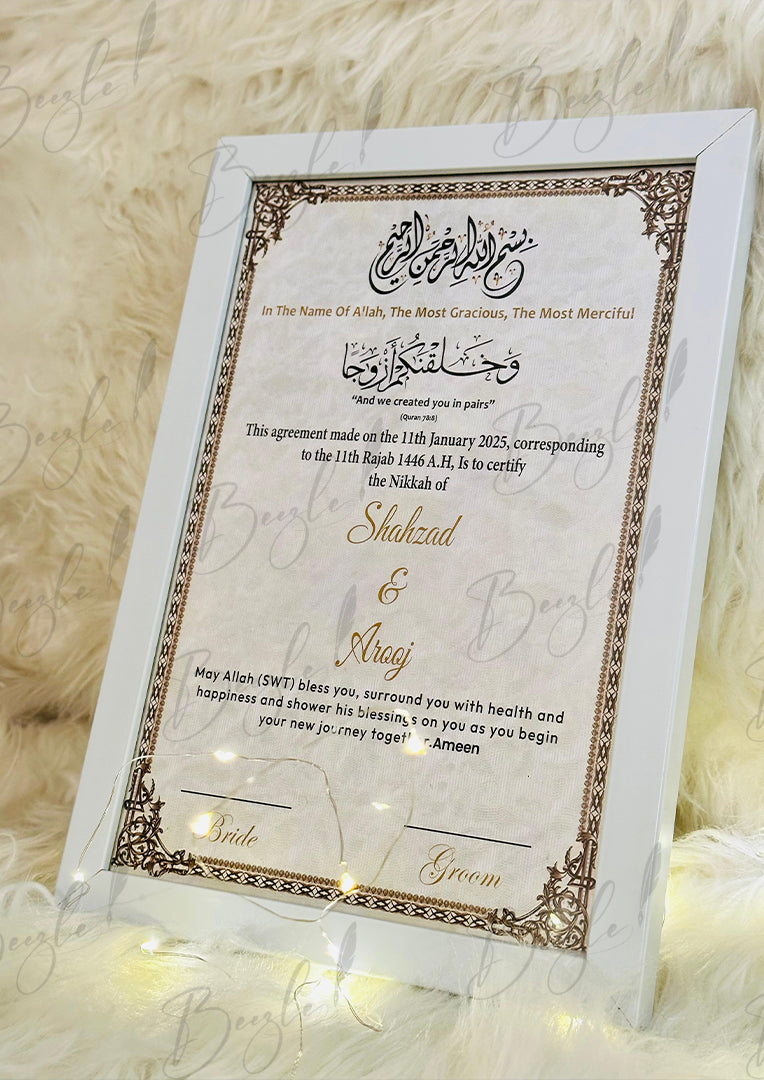 بِسْمِ اللهِ الرَّحْمٰنِ الرَّحِيْمِ
In The Name Of Allah, The Most Gracious, The Most Merciful
وَخَلَقْنَكُمْ أَزْوَجًا
“And we created you in pairs”
(Quran 78:8)
This agreement made on the 11th January 2025, corresponding
to the 11th Rajab 1446 A.H, Is to certify
the Nikkah of
Shahzad
&
Arooj
May Allah (SWT) bless you, surround you with health and
happiness and shower his blessings on you as you begin
your new journey together.Ameen
Bride
Groom
Beezle